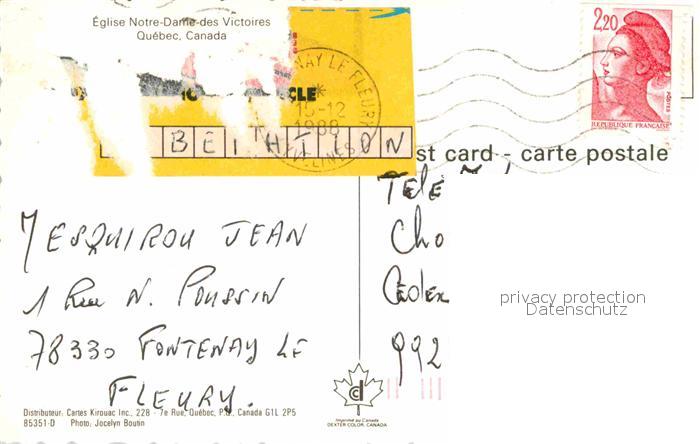 Église Notre-Dame-des Victoires
Québec, Canada
2,20
POSTES
REPUBLIQUE FRANÇAISE
NAY LE FLEURY
15-12
1988
YVELINES
CLE
BETHILON
st card - carte postale
Télé
Cho
Cedex
992
M ESQUIROU JEAN
1 Rue N. POUSSIN
78330 FONTENAY LE
FLEURY.
privacy protection
Datenschutz
Distributeur: Cartes Kirouac Inc., 228 - 7e Rue, Québec, P.Q., Canada G1L 2P5
85351-D Photo: Jocelyn Boutin
Imprimé au Canada
DEXTER COLOR, CANADA